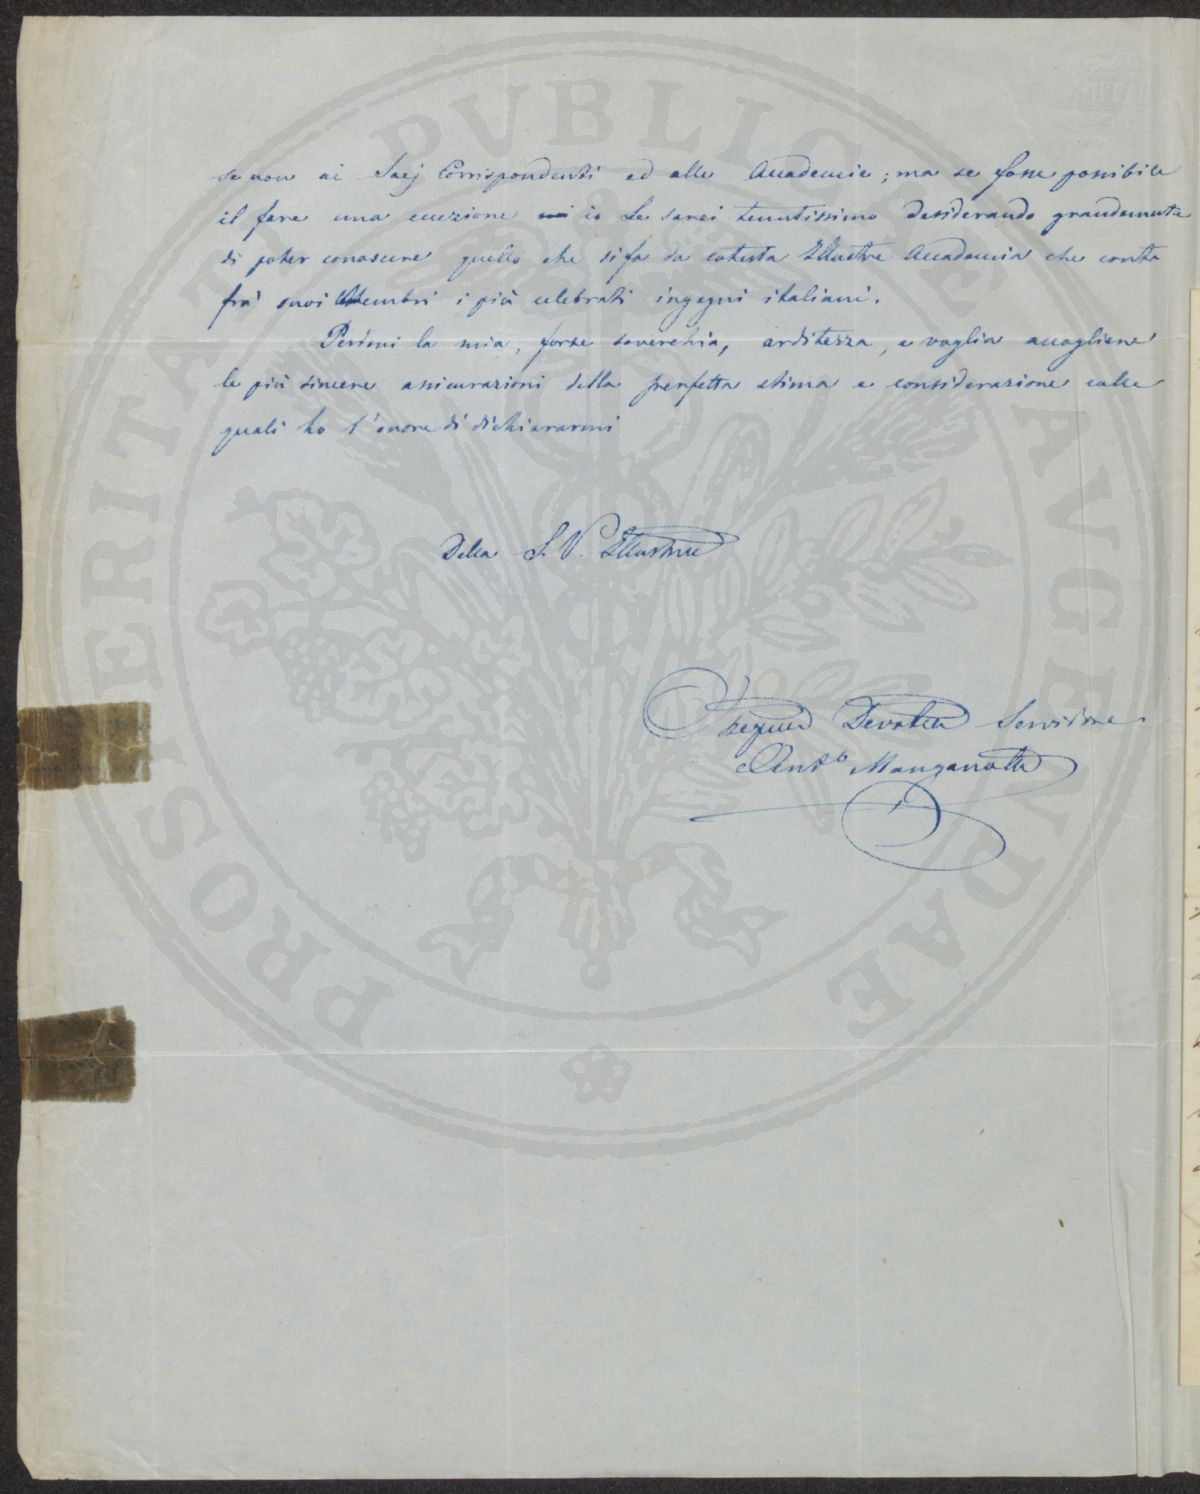 se non ai Socj Corrispondenti ed alle Accademie; ma se fosse possibile
il fare una eccezione io Le sarei tenutissimo desiderando grandemente
di poter conoscere quello che si fa da cotesta Illustre Accademia che conta
fra' suoi Membri i più celebrati ingegni italiani.
Perdoni la mia, forse soverchia, arditezza, e voglia accogliere
le più sincere assicurazioni della perfetta stima e considerazione colle
quali ho l'onore di dichiararmi
Della S. V. Illustre
Devotmo Servidore
Anto Manganotti
PROSPERITATI PVBLICAE AVGENDAE